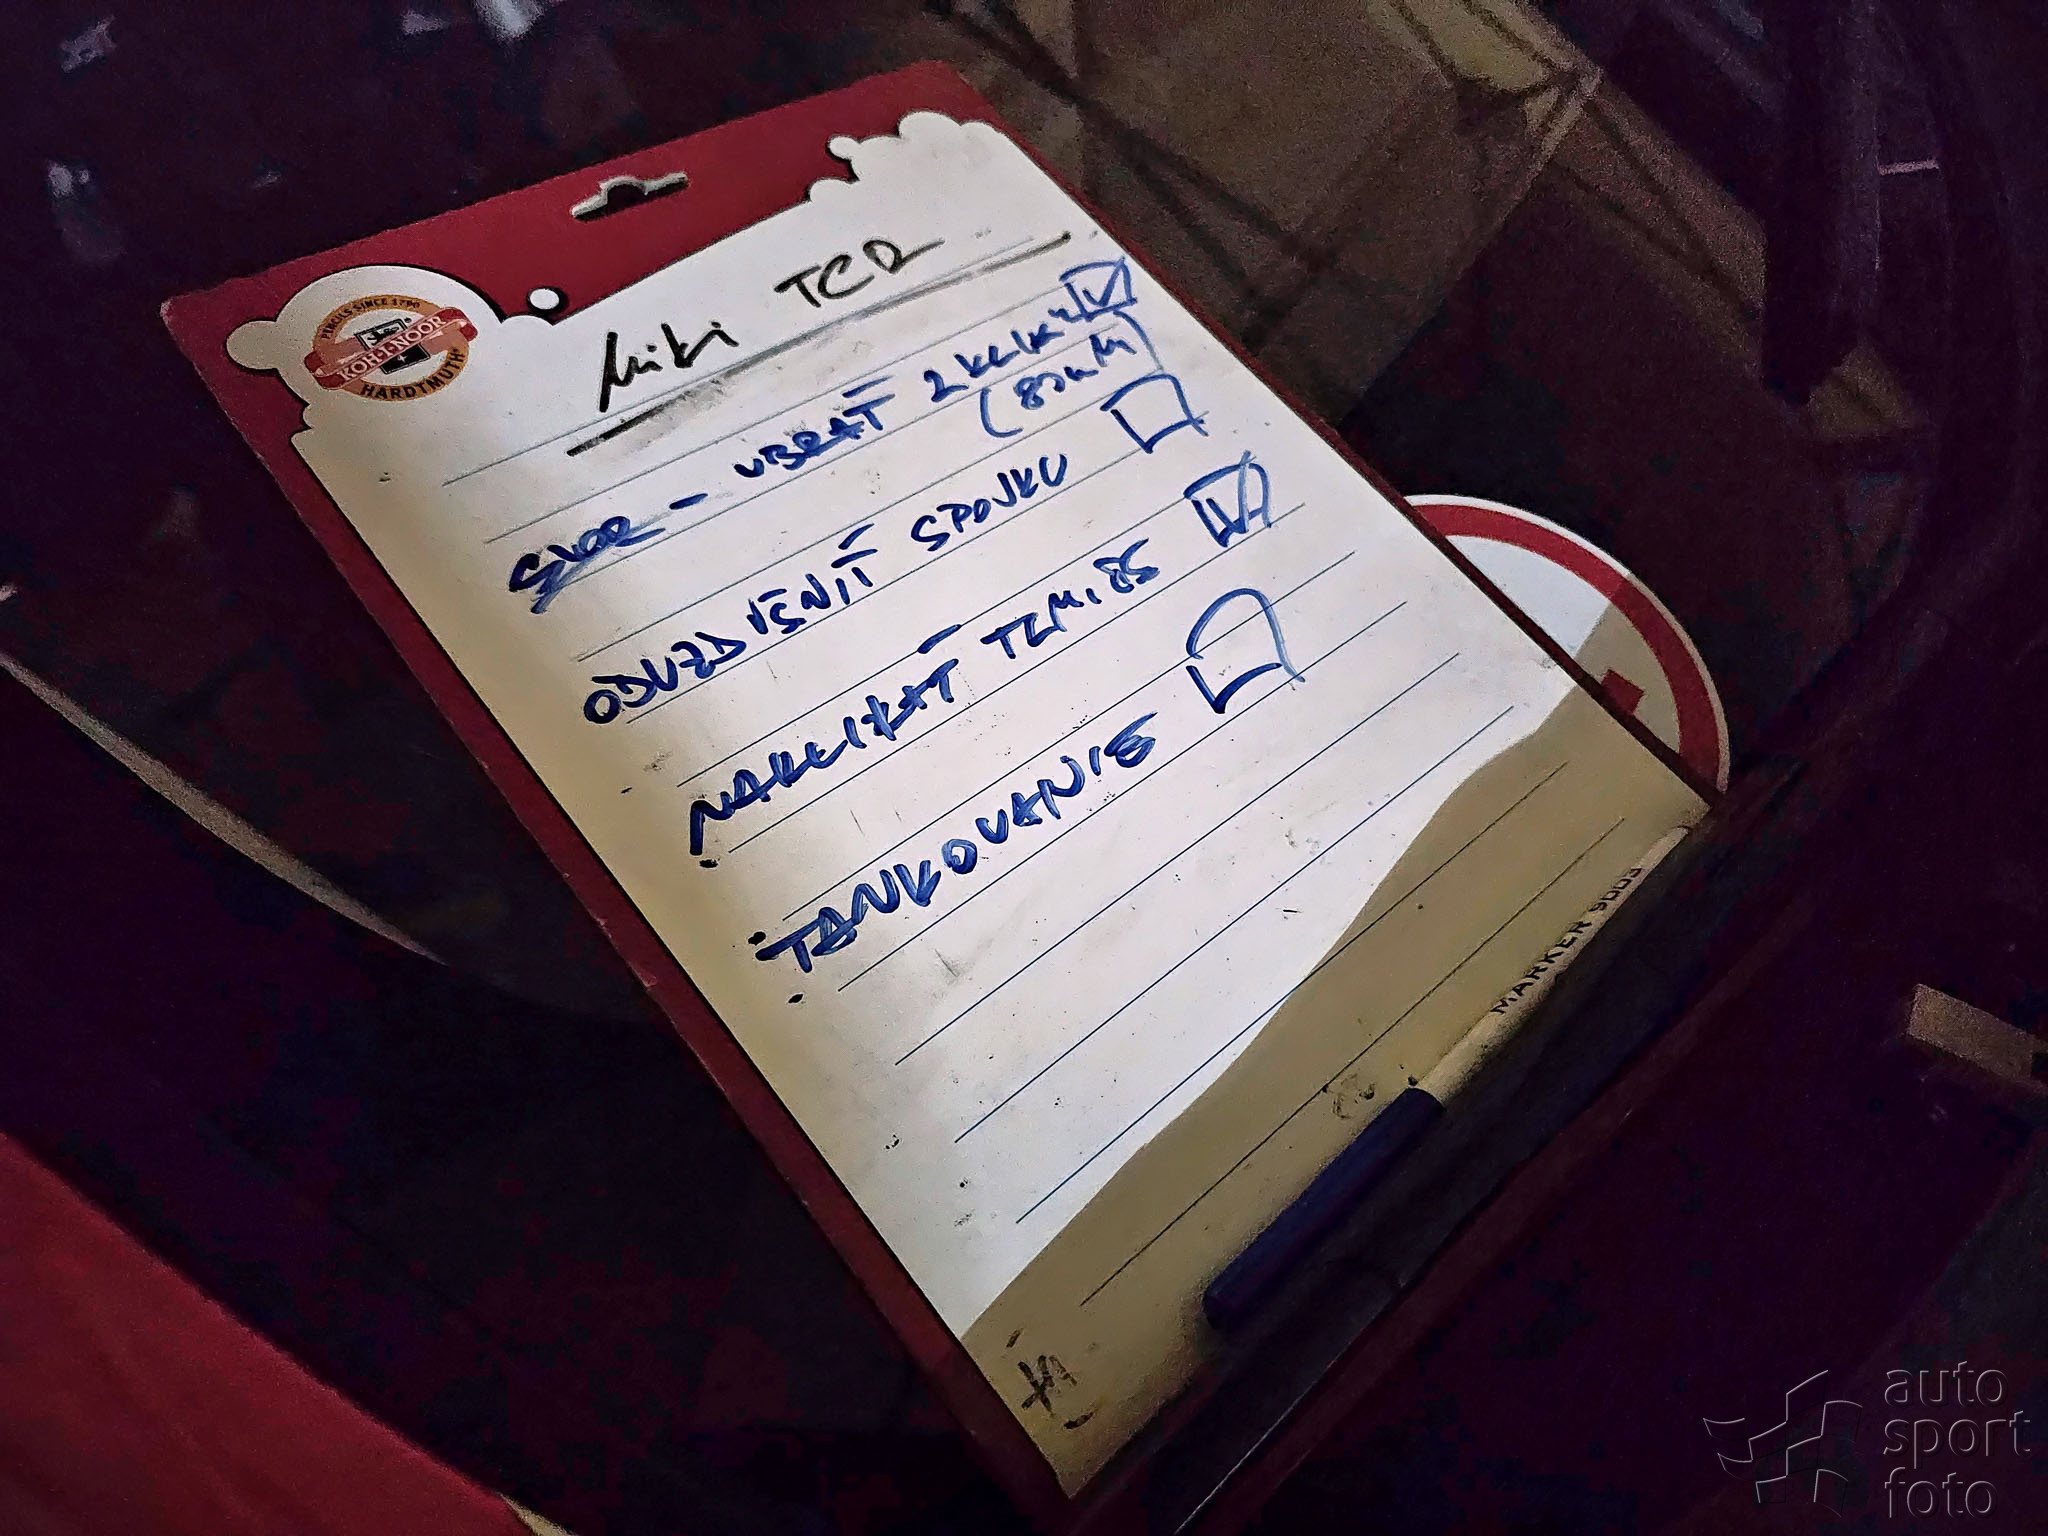 PENCILS SINCE 1790
KOH-I-NOOR
HARDTMUTH
Miki TCR
SVOR - UBRAŤ 2 KLIKY
ODVZDUŠNIŤ SPOJKU
NAKLIKAŤ TLMIČE
TANKOVANIE
MARKER 9003
auto
sport
foto